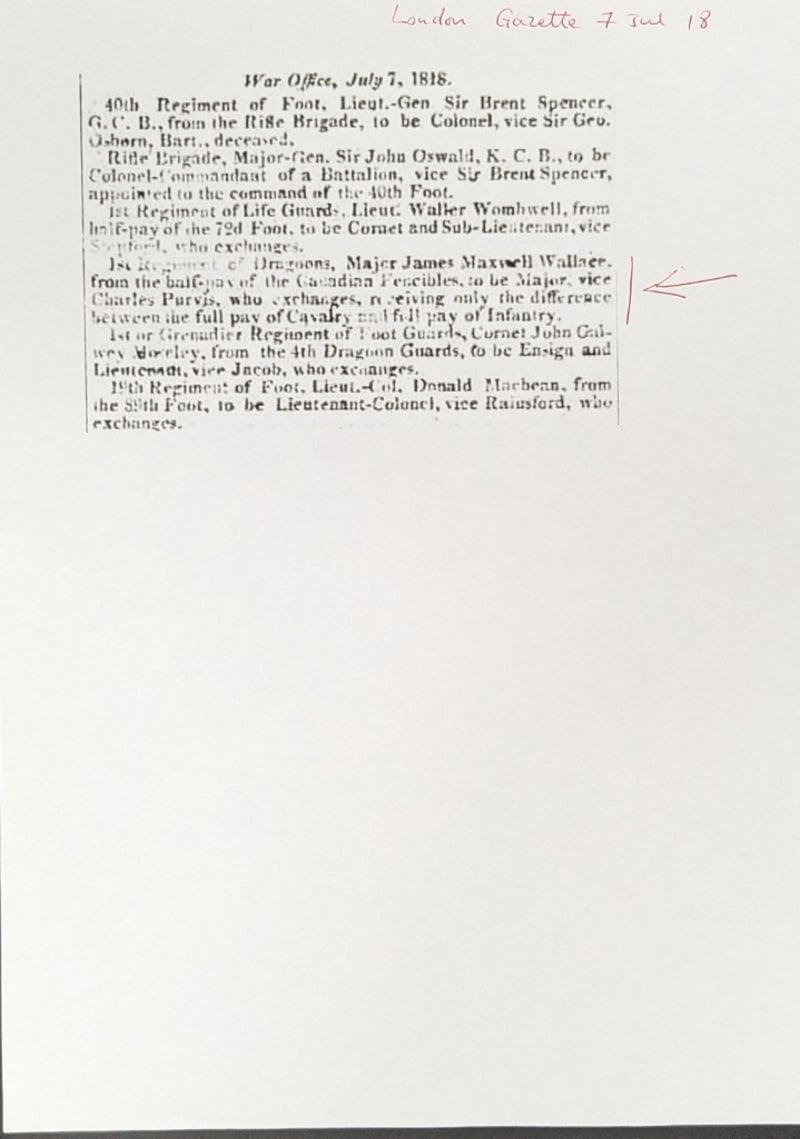 London Gazette 7 Jul 18
War Office, July 7, 1818.
40th Regiment of Foot, Lieut.-Gen Sir Brent Spencer,
G. C. B., from the Rifle Brigade, to be Colonel, vice Sir Geo.
Osborn, Bart., deceased.
Rifle Brigade, Major-Gen. Sir John Oswald, K. C. B., to be
Colonel-Commandant of a Battalion, vice Sir Brent Spencer,
appointed to the command of the 40th Foot.
1st Regiment of Life Guards, Lieut. Walter Wombwell, from
half-pay of the 72d Foot, to be Cornet and Sub-Lieutenant, vice
who exchanges.
1st Regiment of Dragoons, Major James Maxwell Wallace,
from the half-pay of the Canadian Fencibles, to be Major, vice
Charles Purvis, who exchanges, receiving only the difference
between the full pay of Cavalry and full pay of Infantry.
1st or Grenadier Regiment of Foot Guards, Cornet John Gal-
wey from the 4th Dragoon Guards, to be Ensign and
Lieutenant, vice Jacob, who exchanges.
19th Regiment of Foot, Lieut.-Col. Donald Macbean, from
the Foot, to be Lieutenant-Colonel, vice Rainsford, who
exchanges.